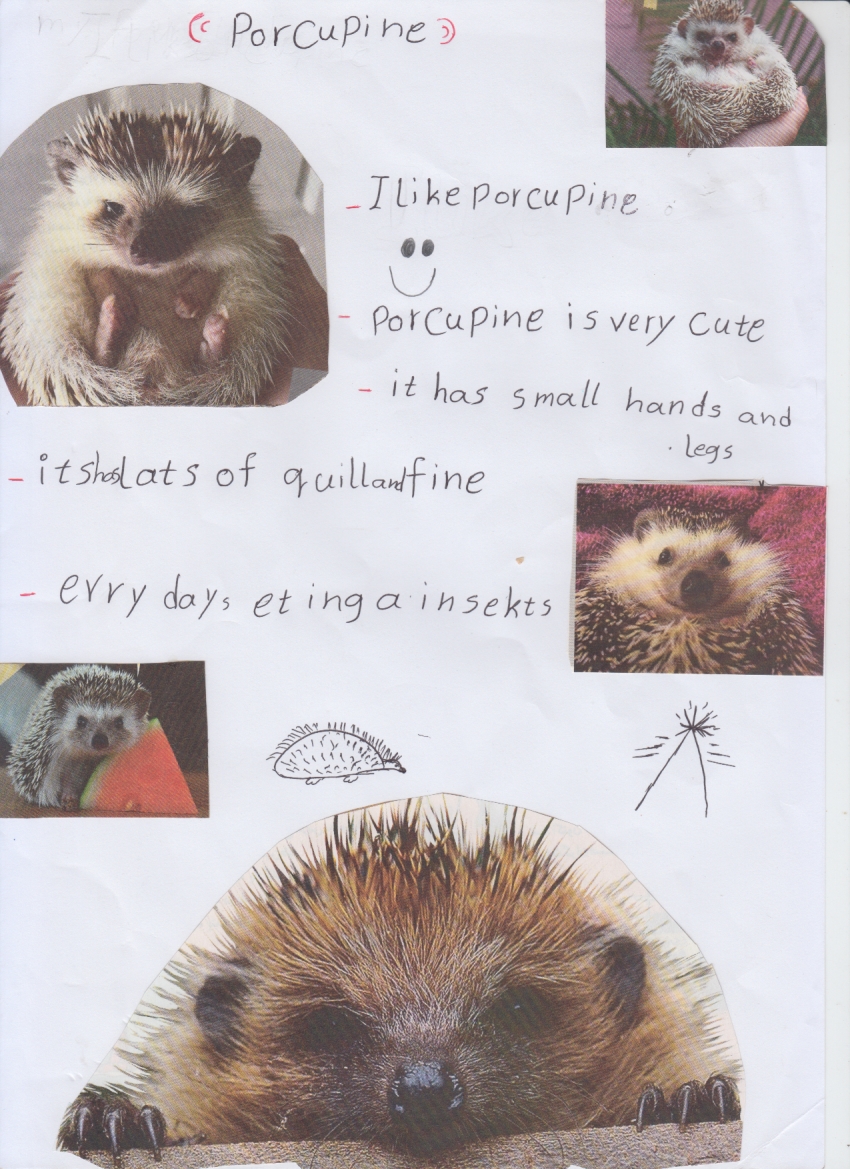 (Porcupine)
- I like porcupine
- porcupine is very cute
- it has small hands and
legs
- itshas lats of quill and fine
- evry days et ing a insekts